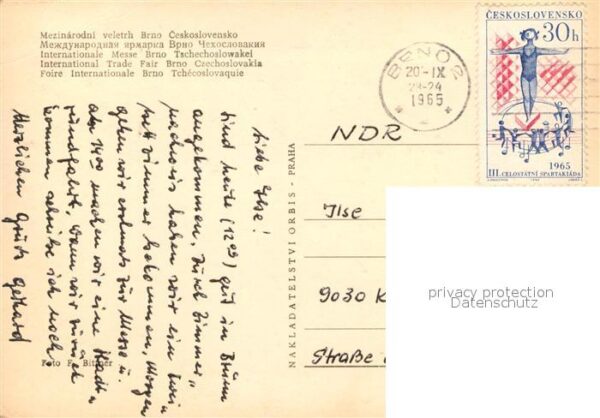 Mezinárodní veletrh Brno Československo
Международная ярмарка Брно Чехословакия
Internationale Messe Brno Tschechoslowakei
International Trade Fair Brno Czechoslovakia
Foire Internationale Brno Tchécoslovaquie
BRNO 2
20.-IX
23-24
1965
ČESKOSLOVENSKO
30h
1965
III. CELOSTÁTNÍ SPARTAKIÁDA
Liebe Ilse!
Sind heute (12 03) gut in Brünn
angekommen. Durch Zimmer„
nachweis haben wir ein Zwei„
bettzimmer bekommen. Morgen
gehen wir erstmals zur Messe u.
um 14 00 machen wir eine Stadt„
rundfahrt. Wenn wir zurück
kommen schreibe ich noch.
Herzlichen Gruß Gerhard
Foto F. Bittner
NAKLADATELSTVÍ ORBIS - PRAHA
NDR
Ilse
9030 K
Straße
privacy protection
Datenschutz